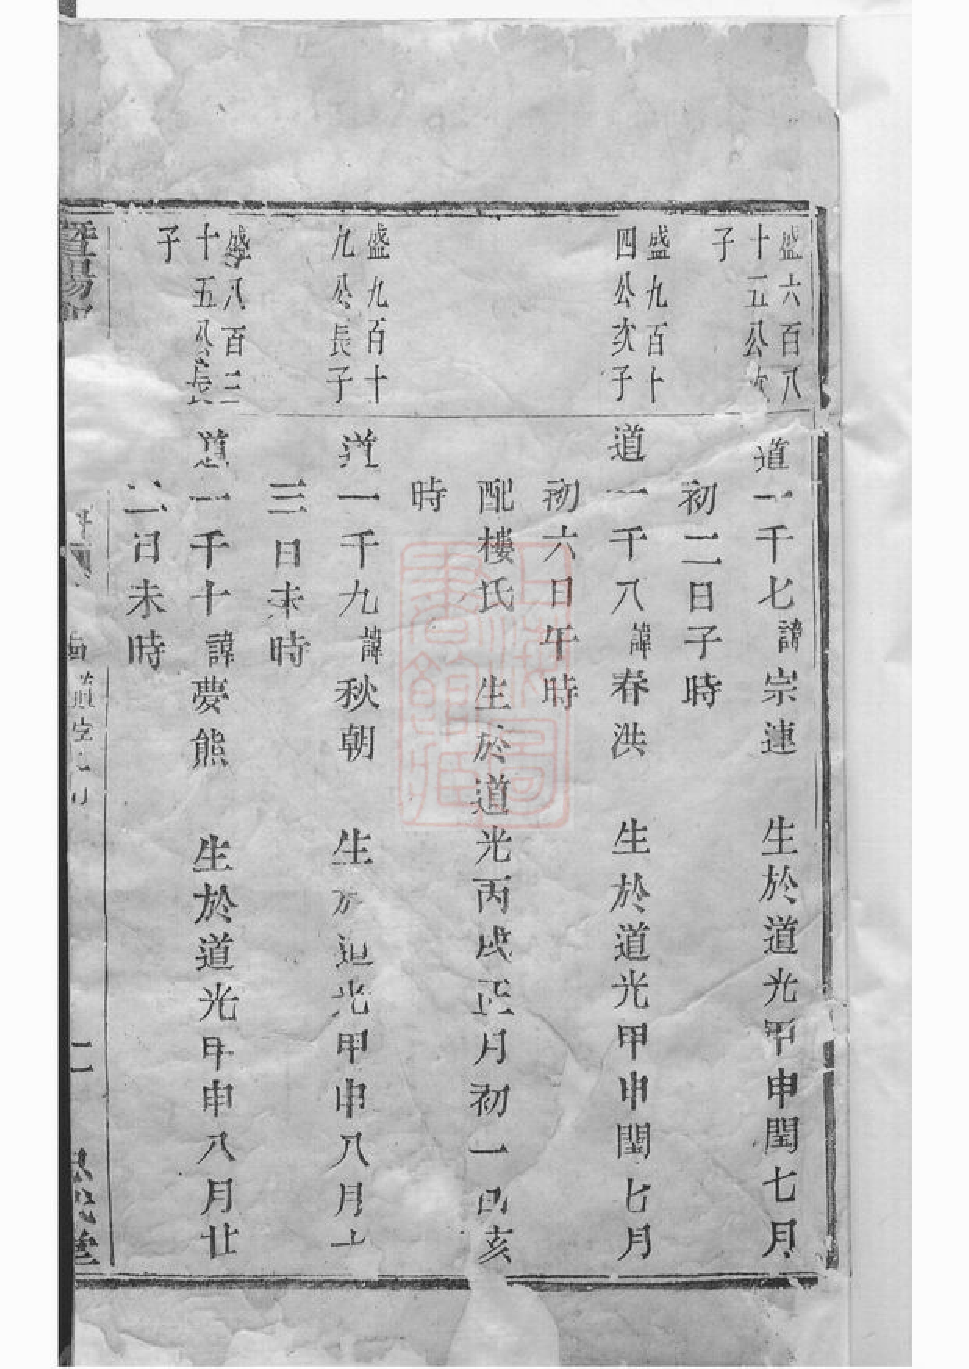 盛六百八
十五公次
子
道一千七諱宗連 生於道光甲申閏七月
初二日子時
盛九百十
四公次子
道一千八諱春洪 生於道光甲申閏七月
初六日午時
配樓氏 生於道光丙戌正月初一日亥
時
盛九百十
九公長子
道一千九諱秋朝 生於道光甲申八月十
三日未時
盛八百三
十五公長
子
道一千十諱夢熊 生於道光甲申八月廿
二日未時
暨陽
上海圖書館藏